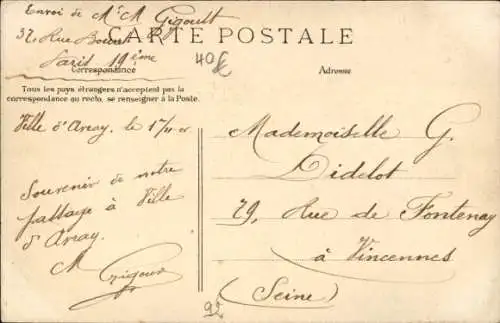 Envoi de Mr M Gigoult
37, Rue
Paris 19ème
CARTE POSTALE
40€
Correspondance
Adresse
Tous les pays étrangers n'acceptent pas la
correspondance au recto, se renseigner à la Poste.
Ville d'Avray, le
Souvenir de notre
passage à Ville
d'Avray.
M
Mademoiselle G.
Didelot
79, Rue de Fontenay
à Vincennes
(Seine)
92